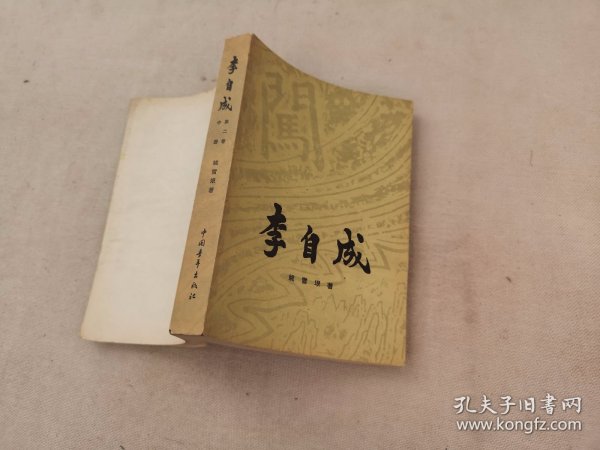 李自成
第二卷
中册
姚雪垠著
中国青年出版社
闖
李自成
姚雪垠著
孔夫子旧书网
www.kongfz.com